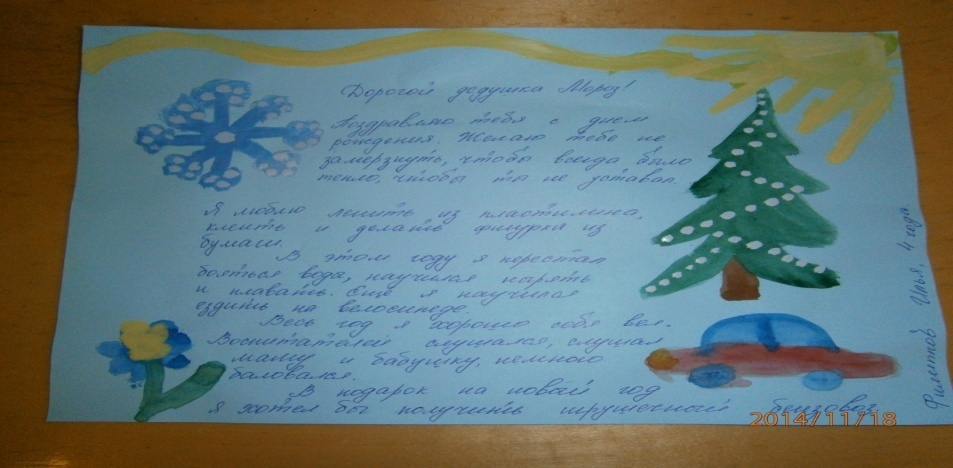 Дорогой дедушка Мороз!
Поздравляю тебя с днем
рождения. Желаю тебе не
замерзнуть, чтобы всегда было
тепло, чтобы ты не уставал.
Я люблю лепить из пластилина,
клеить и делать фигурки из
бумаги.
В этом году я перестал
бояться вода, научился нырять
и плавать. Еще я научился
ездить на велосипеде.
Весь год я хорошо себя вел.
Воспитателей слушался, слушал
маму и бабушку, немного
баловался.
В подарок на новый год
я хотел бы получить игрушечный
Илья, 4 года
2014/11/18